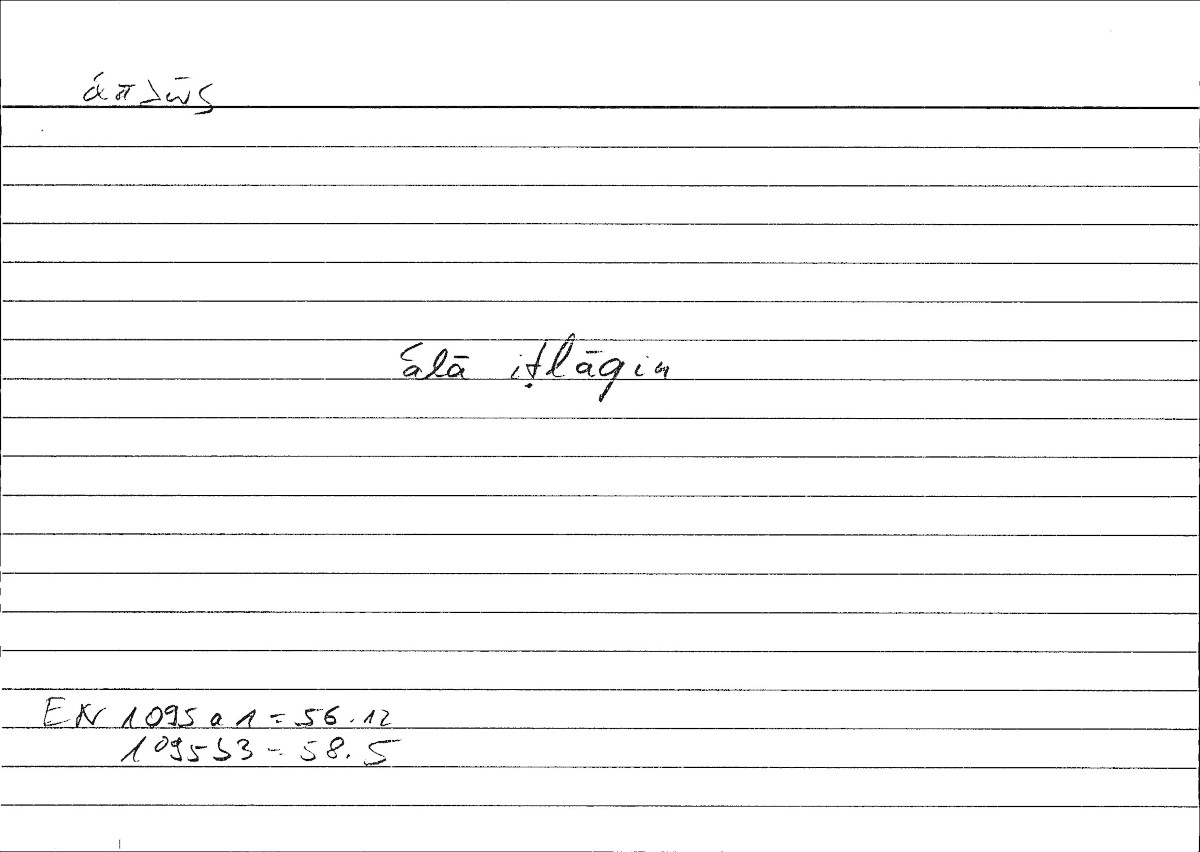 ἁπλῶς
ʿalā iṭlāqin
EN 1095 a 1 = 56.12
1095 b 3 = 58.5